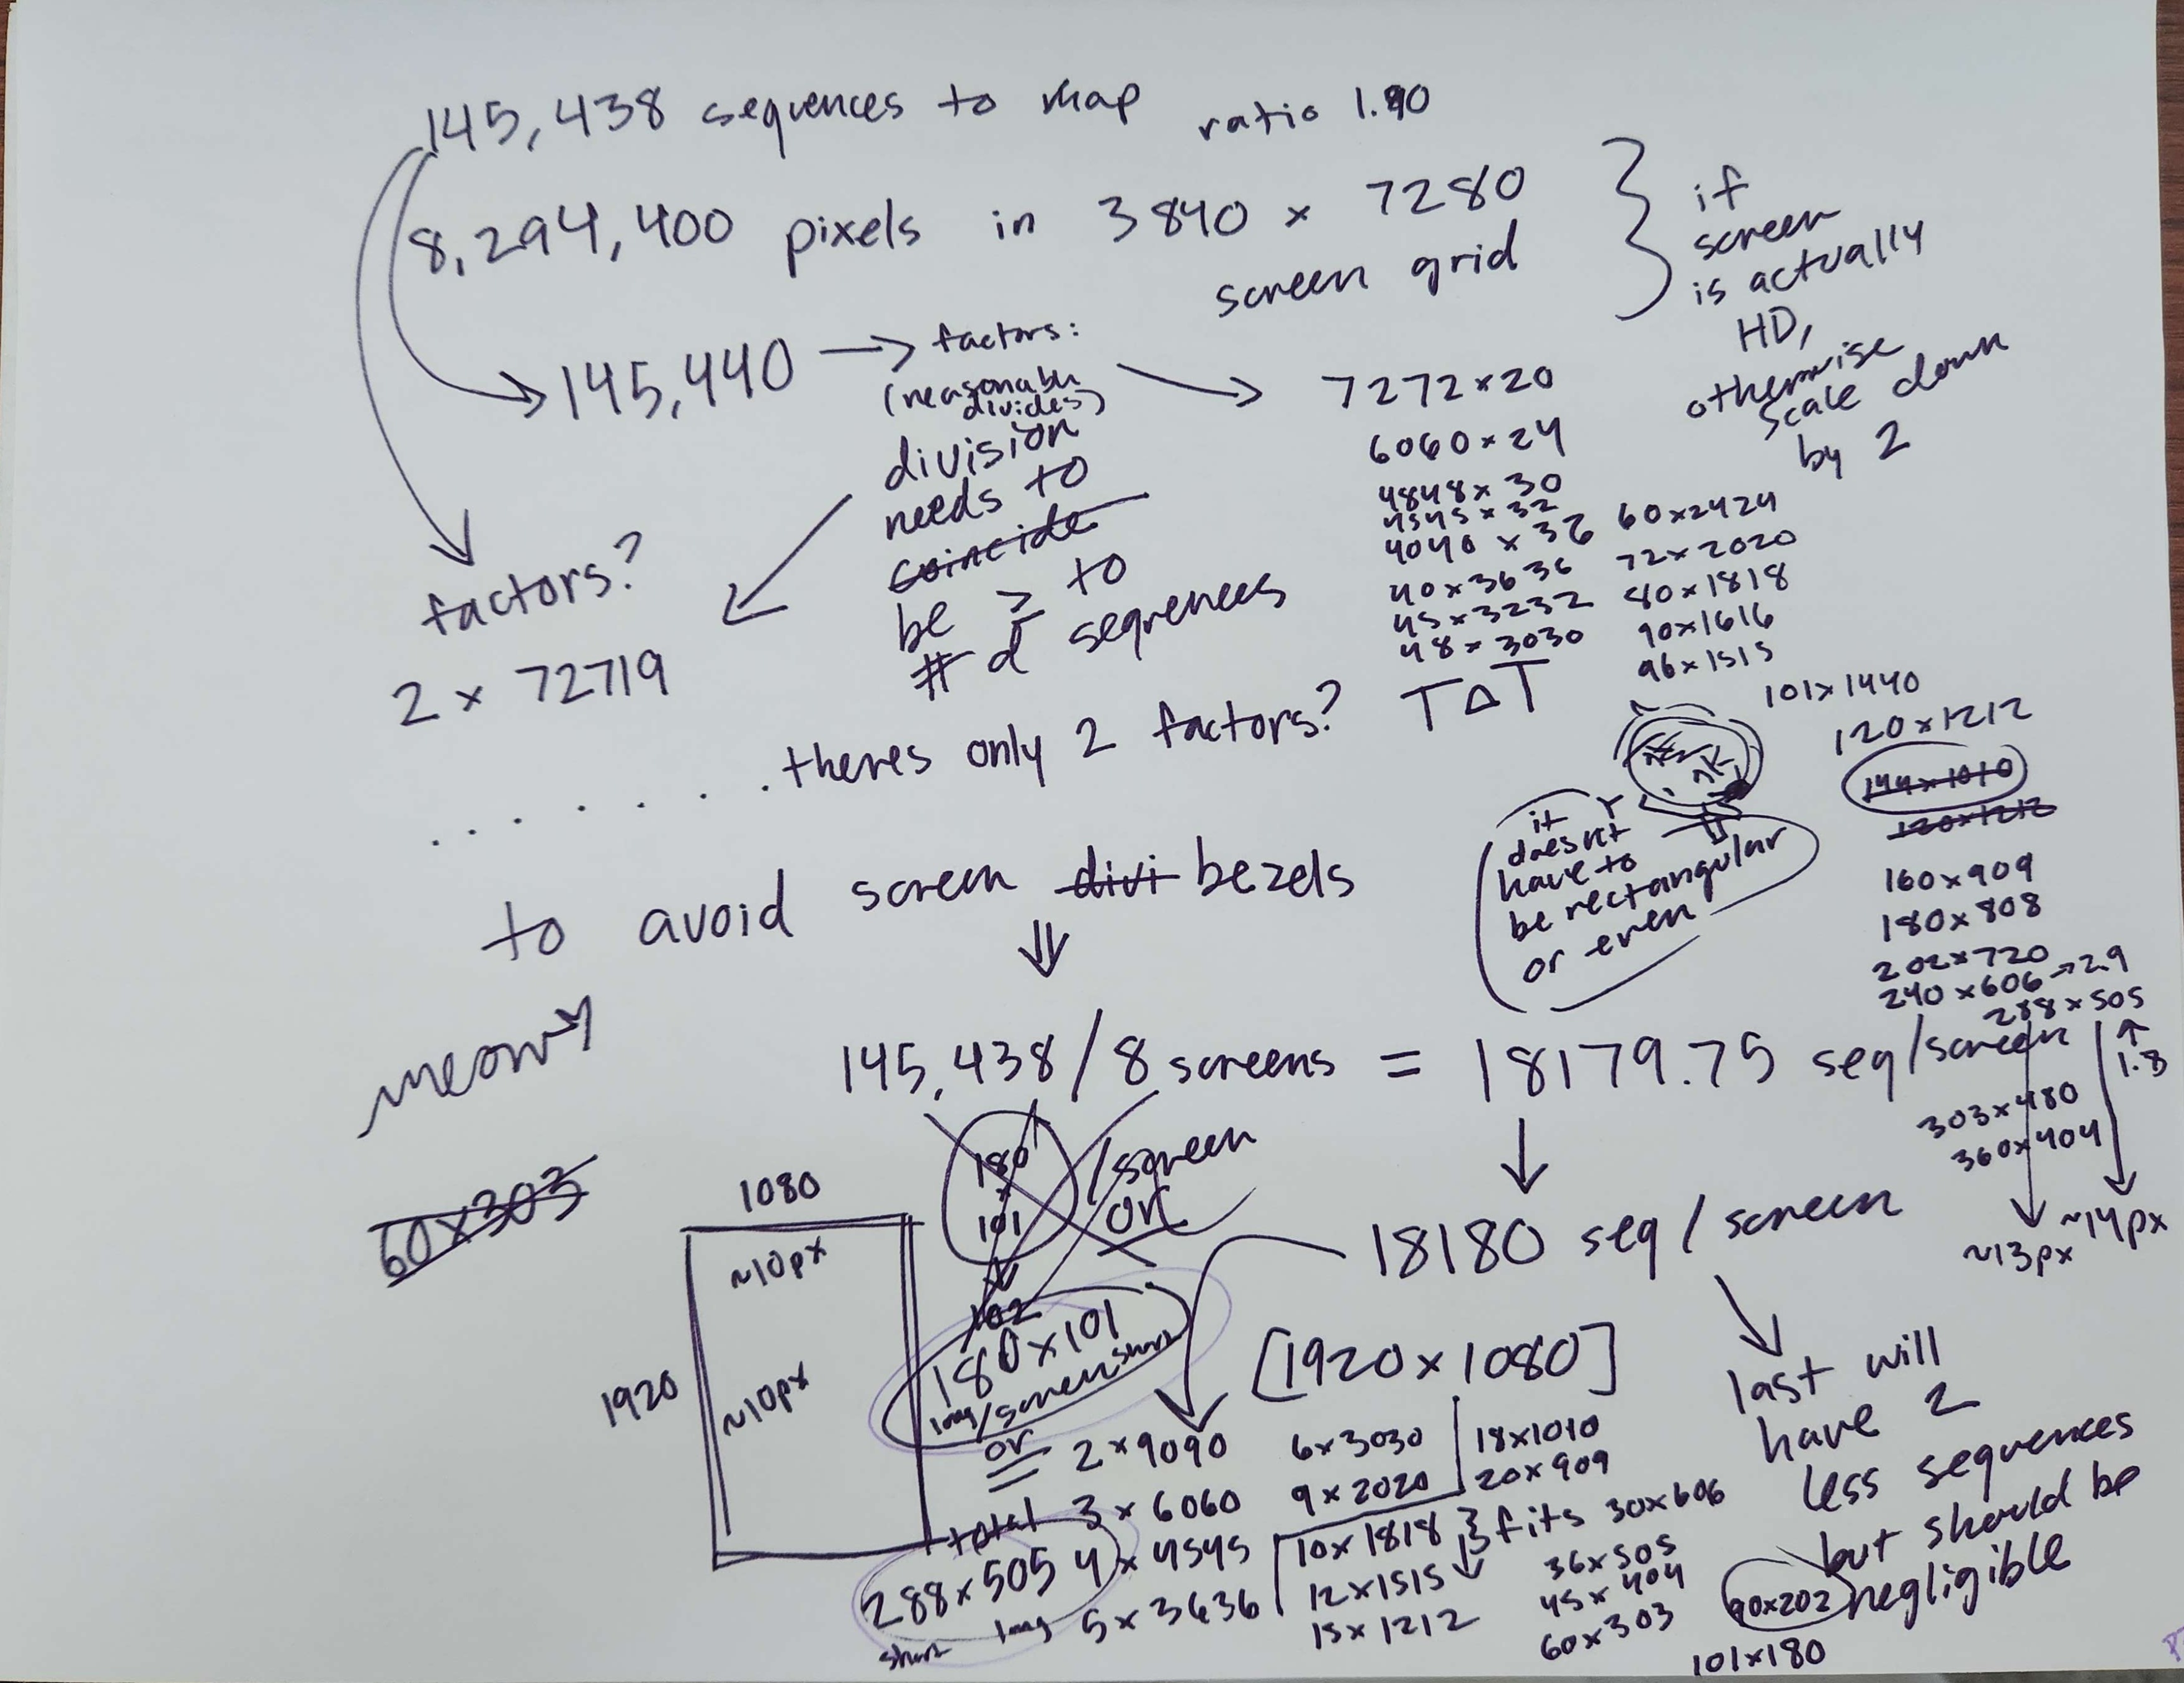 145,438 sequences to map ratio 1.90
8,294,400 pixels in 3840 x 7280
screen grid
if
screen
is actually
HD,
otherwise
scale down
by 2
145,440 → factors:
(reasonable
divides)
division
needs to
coincide
be ≥ to
# of sequences
7272 x 20
6060 x 24
4848 x 30
4545 x 32
4040 x 36
40 x 3636
45 x 3232
48 x 3030
60 x 2424
72 x 2020
80 x 1818
90 x 1616
96 x 1515
101 x 1440
120 x 1212
144 x 1010
120 x 1212
160 x 909
180 x 808
202 x 720
240 x 606 → 2.9
288 x 505
↑
1.8
303 x 480
360 x 404
~13px ~14px
factors?
2 x 72719
. . . . . . . . theres only 2 factors? TΔT
it
doesn't
have to
be rectangular
or even
to avoid screen divi bezels
meow
145,438 / 8 screens = 18179.75 seq/screen
180
x
101
/screen
or
102
60 x 303
1080
~10px
1920
~10px
180 x 101
long/screen short
or
total
288 x 505
short long
18180 seq / screen
[1920 x 1080]
2 x 9090
3 x 6060
4 x 4545
5 x 3636
6 x 3030
9 x 2020
10 x 1818 } fits
12 x 1515
15 x 1212
18 x 1010
20 x 909
30 x 606
36 x 505
45 x 404
60 x 303
90 x 202
101 x 180
last will
have 2
less sequences
but should be
negligible